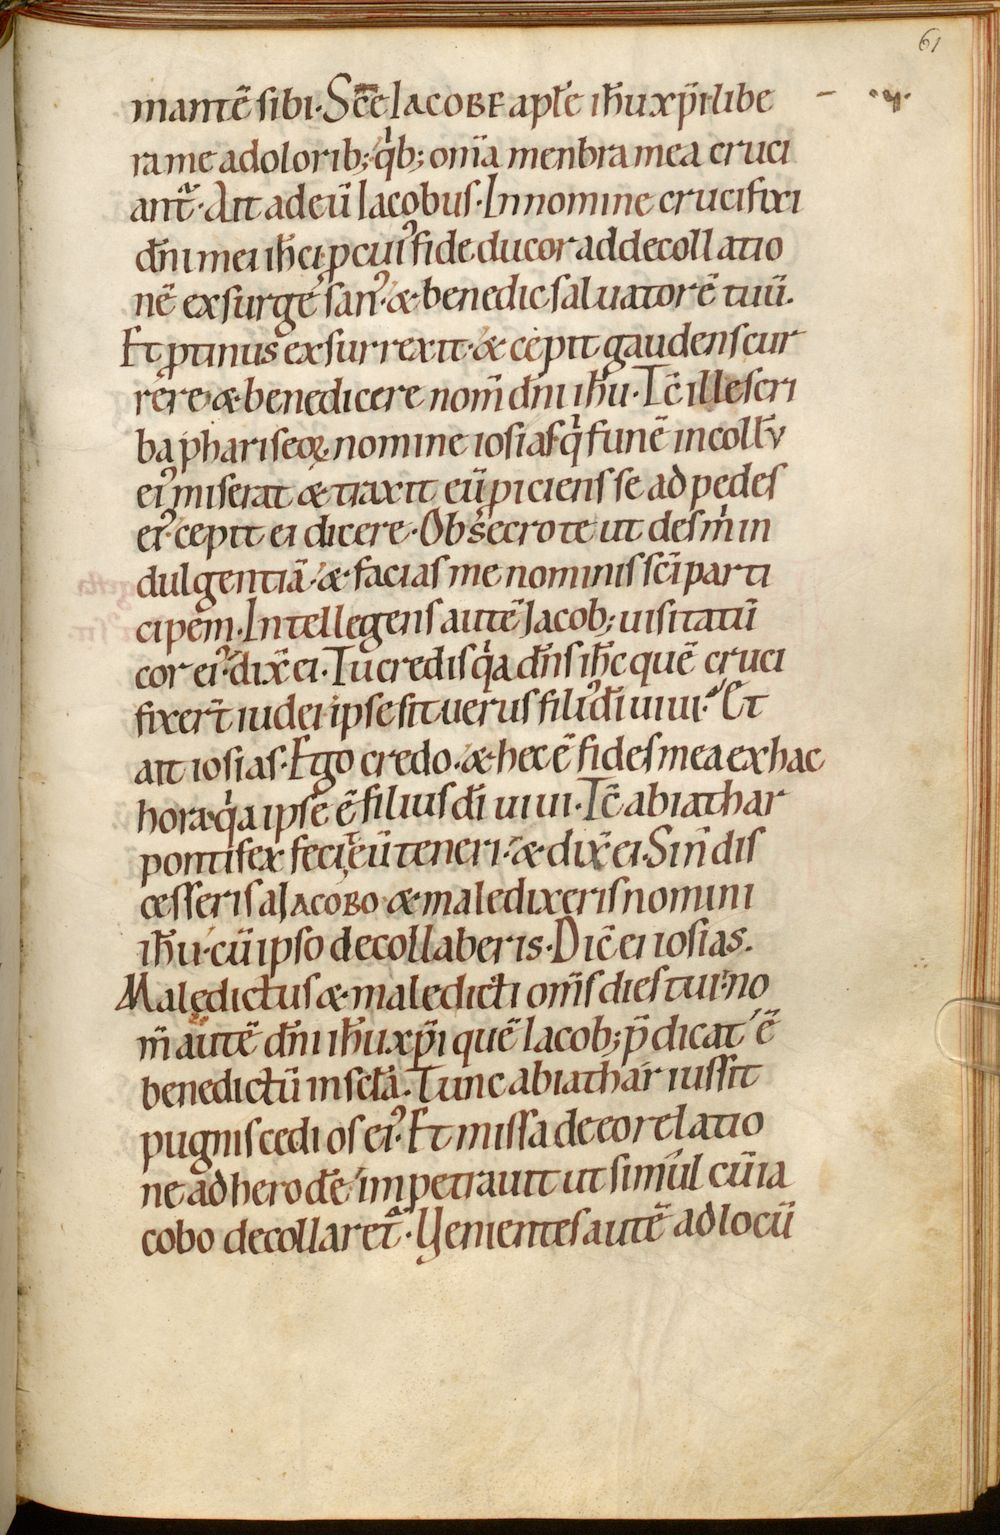 61
mantē sibi. Sc̄e IACOBE aplē ih̄u xp̄i libe
ra me a dolorib; qͥb; om̄a menbra mea cruci
ant᷑. Ait ad eū Iacobus. In nomine crucifixi
dn̄i mei ih̄c p cuiꝰ fide ducor ad decollatio
nē exsurge sanꝰ & benedic saluatorē tuū.
Et ptinus exsurrexit & cepit gaudens cur
rere & benedicere nom̄ dn̄i ih̄u. Tc̄ ille scri
ba phariseoꝝ nomine iosias qͥ funē in collū
eiꝰ miserat & traxit eū piciens se ad pedes
eiꝰ cepit ei dicere. Obsecro te ut des mͥ in
dulgentiā & facias me nominis sc̄i parti
cipem. Intellegens autē Iacob; uisitatū
cor eiꝰ dix̄ ei. Tu credis qͥa dn̄s ih̄c quē cruci
fixer̄t iudei ipse sit uerus filiꝰ dī uiui. Et
ait iosias. Ego credo. & hec ē fides mea ex hac
hora qͥa ipse ē filius dī uiui. Tc̄ abiathar
pontifex fecit eū teneri. & dix̄ ei. Si n̄ dis
cesseris a IACOBO & maledixeris nomini
ih̄u cū ipso decollaberis. Dic̄ ei iosias.
Maledictus & maledicti om̄s dies tui. no
m̄ autē dn̄i ih̄u xp̄i quē Iacob; p̄dicat ē
benedictū in sc̄lā. Tunc abiathar iussit
pugnis cedi os eiꝰ. Et missa de eo relatio
ne ad herodē impetrauit ut simul cū ia
cobo decollaret᷑. Uenientes autē ad locū